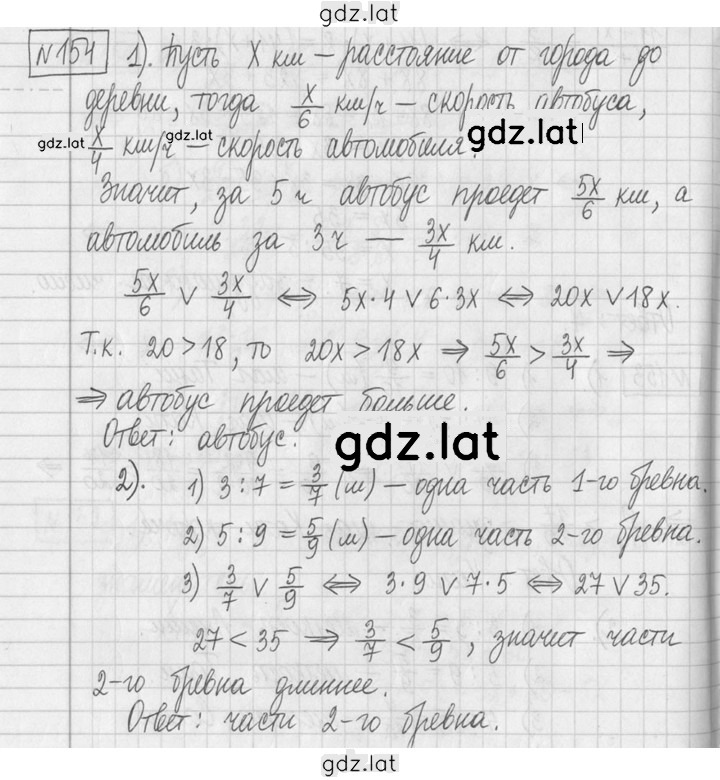 gdz.lat
№154 1). Пусть X км – расстояние от города до
деревни, тогда x/6 км/ч – скорость автобуса,
gdz.lat
gdz.lat gdz.lat
x/4 км/ч – скорость автомобиля.
Значит, за 5 ч автобус проедет 5x/6 км, а
автомобиль за 3 ч — 3x/4 км.
5x/6 ∨ 3x/4 ⇔ 5x·4 ∨ 6·3x ⇔ 20x ∨ 18x.
Т.к. 20 > 18, то 20x > 18x ⇒ 5x/6 > 3x/4 ⇒
⇒ автобус проедет больше.
Ответ: автобус.
gdz.lat
2). 1) 3 : 7 = 3/7 (м) – одна часть 1-го бревна.
2) 5 : 9 = 5/9 (м) – одна часть 2-го бревна.
3) 3/7 ∨ 5/9 ⇔ 3·9 ∨ 7·5 ⇔ 27 ∨ 35.
27 < 35 ⇒ 3/7 < 5/9, значит части
2-го бревна длиннее.
Ответ: части 2-го бревна.
gdz.lat